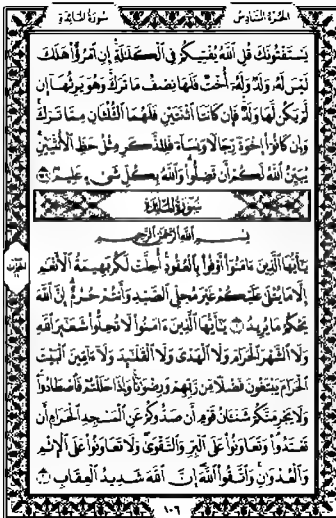 سُورَةُ المَائِدَةِ الجُزْءُ السَّادِسُ
يَسْتَفْتُونَكَ قُلِ ٱللَّهُ يُفْتِيكُمْ فِي ٱلْكَلَٰلَةِ إِنِ ٱمْرُؤٌا۟ هَلَكَ
لَيْسَ لَهُۥ وَلَدٌ وَلَهُۥٓ أُخْتٌ فَلَهَا نِصْفُ مَا تَرَكَ وَهُوَ يَرِثُهَآ إِن
لَّمْ يَكُن لَّهَا وَلَدٌ فَإِن كَانَتَا ٱثْنَتَيْنِ فَلَهُمَا ٱلثُّلُثَانِ مِمَّا تَرَكَ
وَإِن كَانُوٓا۟ إِخْوَةً رِّجَالًا وَنِسَآءً فَلِلذَّكَرِ مِثْلُ حَظِّ ٱلْأُنثَيَيْنِ
يُبَيِّنُ ٱللَّهُ لَكُمْ أَن تَضِلُّوا۟ وَٱللَّهُ بِكُلِّ شَىْءٍ عَلِيمٌۢ
سُورَةُ المَائِدَةِ
بِسْمِ ٱللَّهِ ٱلرَّحْمَٰنِ ٱلرَّحِيمِ
يَٰٓأَيُّهَا ٱلَّذِينَ ءَامَنُوٓا۟ أَوْفُوا۟ بِٱلْعُقُودِ أُحِلَّتْ لَكُم بَهِيمَةُ ٱلْأَنْعَٰمِ
إِلَّا مَا يُتْلَىٰ عَلَيْكُمْ غَيْرَ مُحِلِّى ٱلصَّيْدِ وَأَنتُمْ حُرُمٌ إِنَّ ٱللَّهَ
يَحْكُمُ مَا يُرِيدُ ١ يَٰٓأَيُّهَا ٱلَّذِينَ ءَامَنُوا۟ لَا تُحِلُّوا۟ شَعَٰٓئِرَ ٱللَّهِ
وَلَا ٱلشَّهْرَ ٱلْحَرَامَ وَلَا ٱلْهَدْىَ وَلَا ٱلْقَلَٰٓئِدَ وَلَآ ءَآمِّينَ ٱلْبَيْتَ
ٱلْحَرَامَ يَبْتَغُونَ فَضْلًا مِّن رَّبِّهِمْ وَرِضْوَٰنًا وَإِذَا حَلَلْتُمْ فَٱصْطَادُوا۟
وَلَا يَجْرِمَنَّكُمْ شَنَـَٔانُ قَوْمٍ أَن صَدُّوكُمْ عَنِ ٱلْمَسْجِدِ ٱلْحَرَامِ أَن
تَعْتَدُوا۟ وَتَعَاوَنُوا۟ عَلَى ٱلْبِرِّ وَٱلتَّقْوَىٰ وَلَا تَعَاوَنُوا۟ عَلَى ٱلْإِثْمِ
وَٱلْعُدْوَٰنِ وَٱتَّقُوا۟ ٱللَّهَ إِنَّ ٱللَّهَ شَدِيدُ ٱلْعِقَابِ ٢
١٠٦